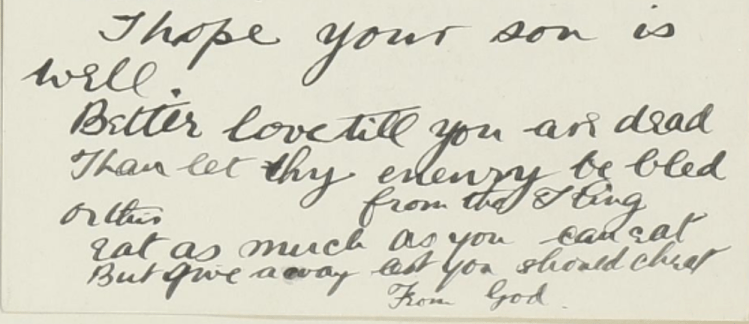 I hope your son is
well.
Better love till you are dead
Than let thy enemy be bled
from the King
Or this
Eat as much as you can eat
But give away lest you should cheat
From God.